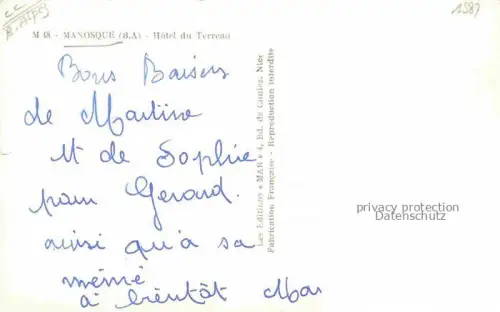 CC
B. Alpes
1587
M 48 - MANOSQUE (B.A) - Hôtel du Terreau
Bons Baisers
de Martine
et de Sophie
pour Gerard.
ainsi qu'a sa
mémé
a bientôt Mar
Les Editions « MAR » 4, Bd. de Cimiez, Nice
Fabrication Française - Reproduction interdite
privacy protection
Datenschutz